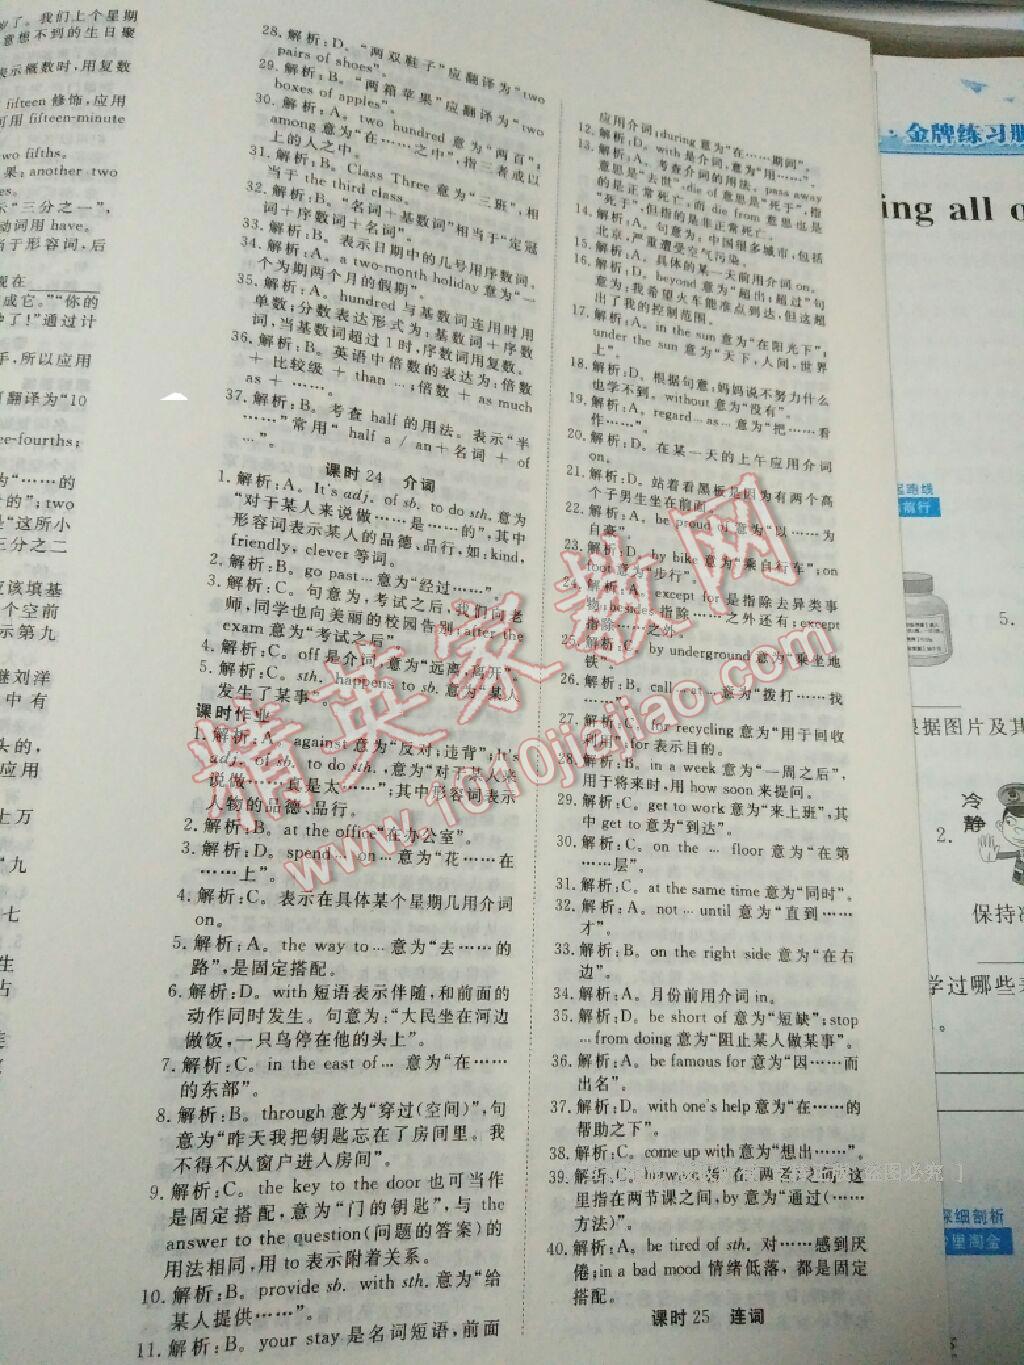 岁了。我们上个星期
意想不到的生日聚
表示概数时,用复数
fifteen 修饰,应用
可用 fifteen-minute
two fifths。
果;another two
示“三分之一”,
动词用 have。
当于形容词,后
现在
成它。”“你的
种了!”通过计
手,所以应用
可翻译为“10
ee-fourths;
为“……的
的”;two
是“这所小
三分之二
应该填基
个空前
示第九
继刘洋
中有
头的,
应用
上万
“九
七
生
占
28. 解析:D。“两双鞋子”应翻译为“two
pairs of shoes”。
29. 解析:B。“两箱苹果”应翻译为“two
boxes of apples”。
30. 解析:A。two hundred 意为“两百”;
among 意为“在……之中”,指三者或以
上的人之中。
31. 解析:B。Class Three 意为“三班”,相
当于 the third class。
32. 解析:B。“名词+基数词”相当于“定冠
词+序数词+名词”。
33. 解析:B。表示日期中的几号用序数词。
34. 解析:A。a two-month holiday 意为“一
个为期两个月的假期”。
35. 解析:A。hundred 与基数词连用时用
单数;分数表达形式为:基数词+序数
词,当基数词超过1时,序数词用复数。
36. 解析:B。英语中倍数的表达为:倍数
+ 比较级 + than …;倍数 + as much
as + ……。
37. 解析:B。考查 half 的用法。表示“半
……”常用“ half a / an+名词 + of
…”。
课时24 介词
1. 解析:A。It's adj. of sb. to do sth. 意为
“对于某人来说做……是……的”,其中
形容词表示某人的品德、品行,如:kind,
friendly, clever 等词。
2. 解析:B。go past… 意为“经过……”。
3. 解析:C。句意为:考试之后,我们向老
师,同学也向美丽的校园告别;after the
exam 意为“考试之后”。
4. 解析:C。off 是介词,意为“远离,离开”。
5. 解析:C。sth. happens to sb. 意为“某人
发生了某事”。
课时作业
1. 解析:A。against 意为“反对;违背”;It's
adj. of sb. to do sth. ,意为“对于某人来
说做……真是太……”;其中形容词表示
人物的品德、品行。
2. 解析:B。at the office“在办公室”。
3. 解析:D。spend… on…意为“花……在
……上”。
4. 解析:C。表示在具体某个星期几用介词
on。
5. 解析:A。the way to… 意为“去……的
路”,是固定搭配。
6. 解析:D。with 短语表示伴随,和前面的
动作同时发生。句意为:“大民坐在河边
做饭,一只鸟停在他的头上”。
7. 解析:C。in the east of… 意为“在……
的东部”。
8. 解析:B。through 意为“穿过(空间)”,句
意为“昨天我把钥匙忘在了房间里。我
不得不从窗户进入房间”。
9. 解析:C。the key to the door 也可当作
是固定搭配,意为“门的钥匙”,与 the
answer to the question(问题的答案)的
用法相同,用 to 表示附着关系。
10. 解析:B。provide sb. with sth. 意为“给
某人提供……”。
11. 解析:B。your stay 是名词短语,前面
应用介词;during 意为“在……期间”。
12. 解析:D。with 是介词,意为“用……”。
13. 解析:A。考查介词的用法。pass away
意思是“去世”,die of 意思是“死于”,指
的是正常死亡;而 die from 意思也是
“死于”,但指的是非正常死亡。
14. 解析:A。句意为:中国很多城市,包括
北京,严重遭受空气污染。
15. 解析:A。具体的某一天前用介词 on。
16. 解析:D。beyond 意为“超出;超过”句
意为:我希望火车能准点到达,但这超
出了我的控制范围。
17. 解析:A。in the sun 意为“在阳光下”;
under the sun 意为“天下,人间,世界
上”。
18. 解析:D。根据句意:妈妈说不努力什么
也学不到。without 意为“没有”。
19. 解析:A。regard…as…意为“把……看
作……”。
20. 解析:D。在某一天的上午应用介词
on。
21. 解析:D。站着看黑板是因为有两个高
个子男生坐在前面。
22. 解析:A。be proud of 意为“以……为
自豪”。
23. 解析:D。by bike 意为“乘自行车”;on
foot 意为“步行”。
24. 解析:A。except for 是指除去异类事
物;besides 指除……之外还有;except
指除……之外。
25. 解析:C。by underground 意为“乘坐地
铁”。
26. 解析:B。call…at…意为“拨打……找
……”。
27. 解析:C。for recycling 意为“用于回收
利用”;for 表示目的。
28. 解析:B。in a week 意为“一周之后”,
用于将来时,用 how soon 来提问。
29. 解析:C。get to work 意为“来上班”,其
中 get to 意为“到达”。
30. 解析:C。on the … floor 意为“在第
……层”。
31. 解析:C。at the same time 意为“同时”。
32. 解析:A。not … until 意为“直到……
才”。
33. 解析:B。on the right side 意为“在右
边”。
34. 解析:A。月份前用介词 in。
35. 解析:D。be short of 意为“短缺”;stop
…from doing 意为“阻止某人做某事”。
36. 解析:A。be famous for 意为“因……而
出名”。
37. 解析:D。with one's help 意为“在……的
帮助之下”。
38. 解析:C。come up with 意为“想出……”。
39. 解析:C。between 指“在两者之间”这
里指在两节课之间,by 意为“通过(……
方法)”。
40. 解析:A。be tired of sth. 对……感到厌
倦;in a bad mood 情绪低落,都是固定
搭配。
课时25 连词
精英家教网
www.1010jiajiao.com
·金牌练习册
ing all
起跑线
前行
5.
根据图片及其
冷静
2.
保持
学过哪些
。
深细剖析
里淘金
盗图必究 ]